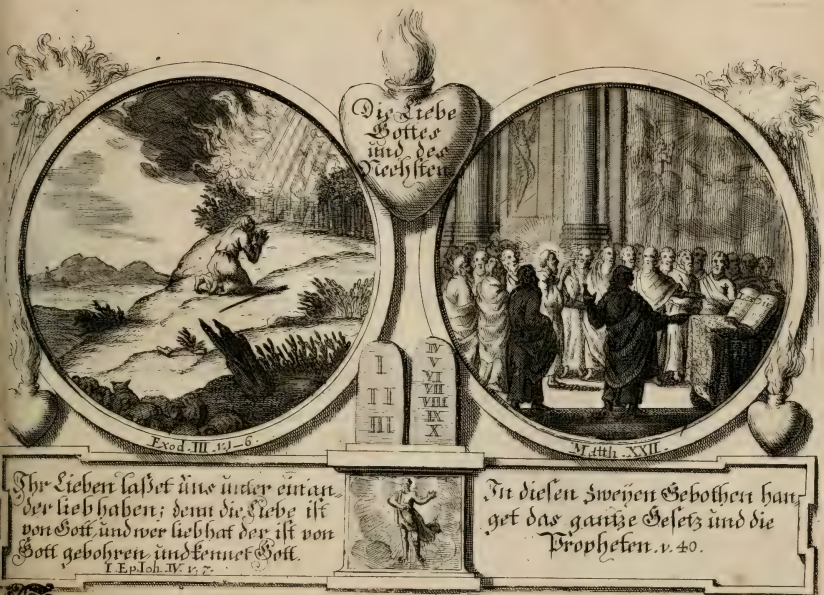 Die Liebe
Gottes
und des
Nechsten
I
II
III
IV
V
VI
VII
VIII
IX
X
Exod. III. v. 1-6.
Matth. XXII.
Ihr Lieben laßet uns unter einan-
der lieb haben; denn die Liebe ist
von Gott, und wer lieb hat der ist von
Gott gebohren und kennet Gott.
I. Ep. Ioh. IV. v. 7.
In diesen zweyen Gebothen han-
get das gantze Gesetz und die
Propheten. v. 40.